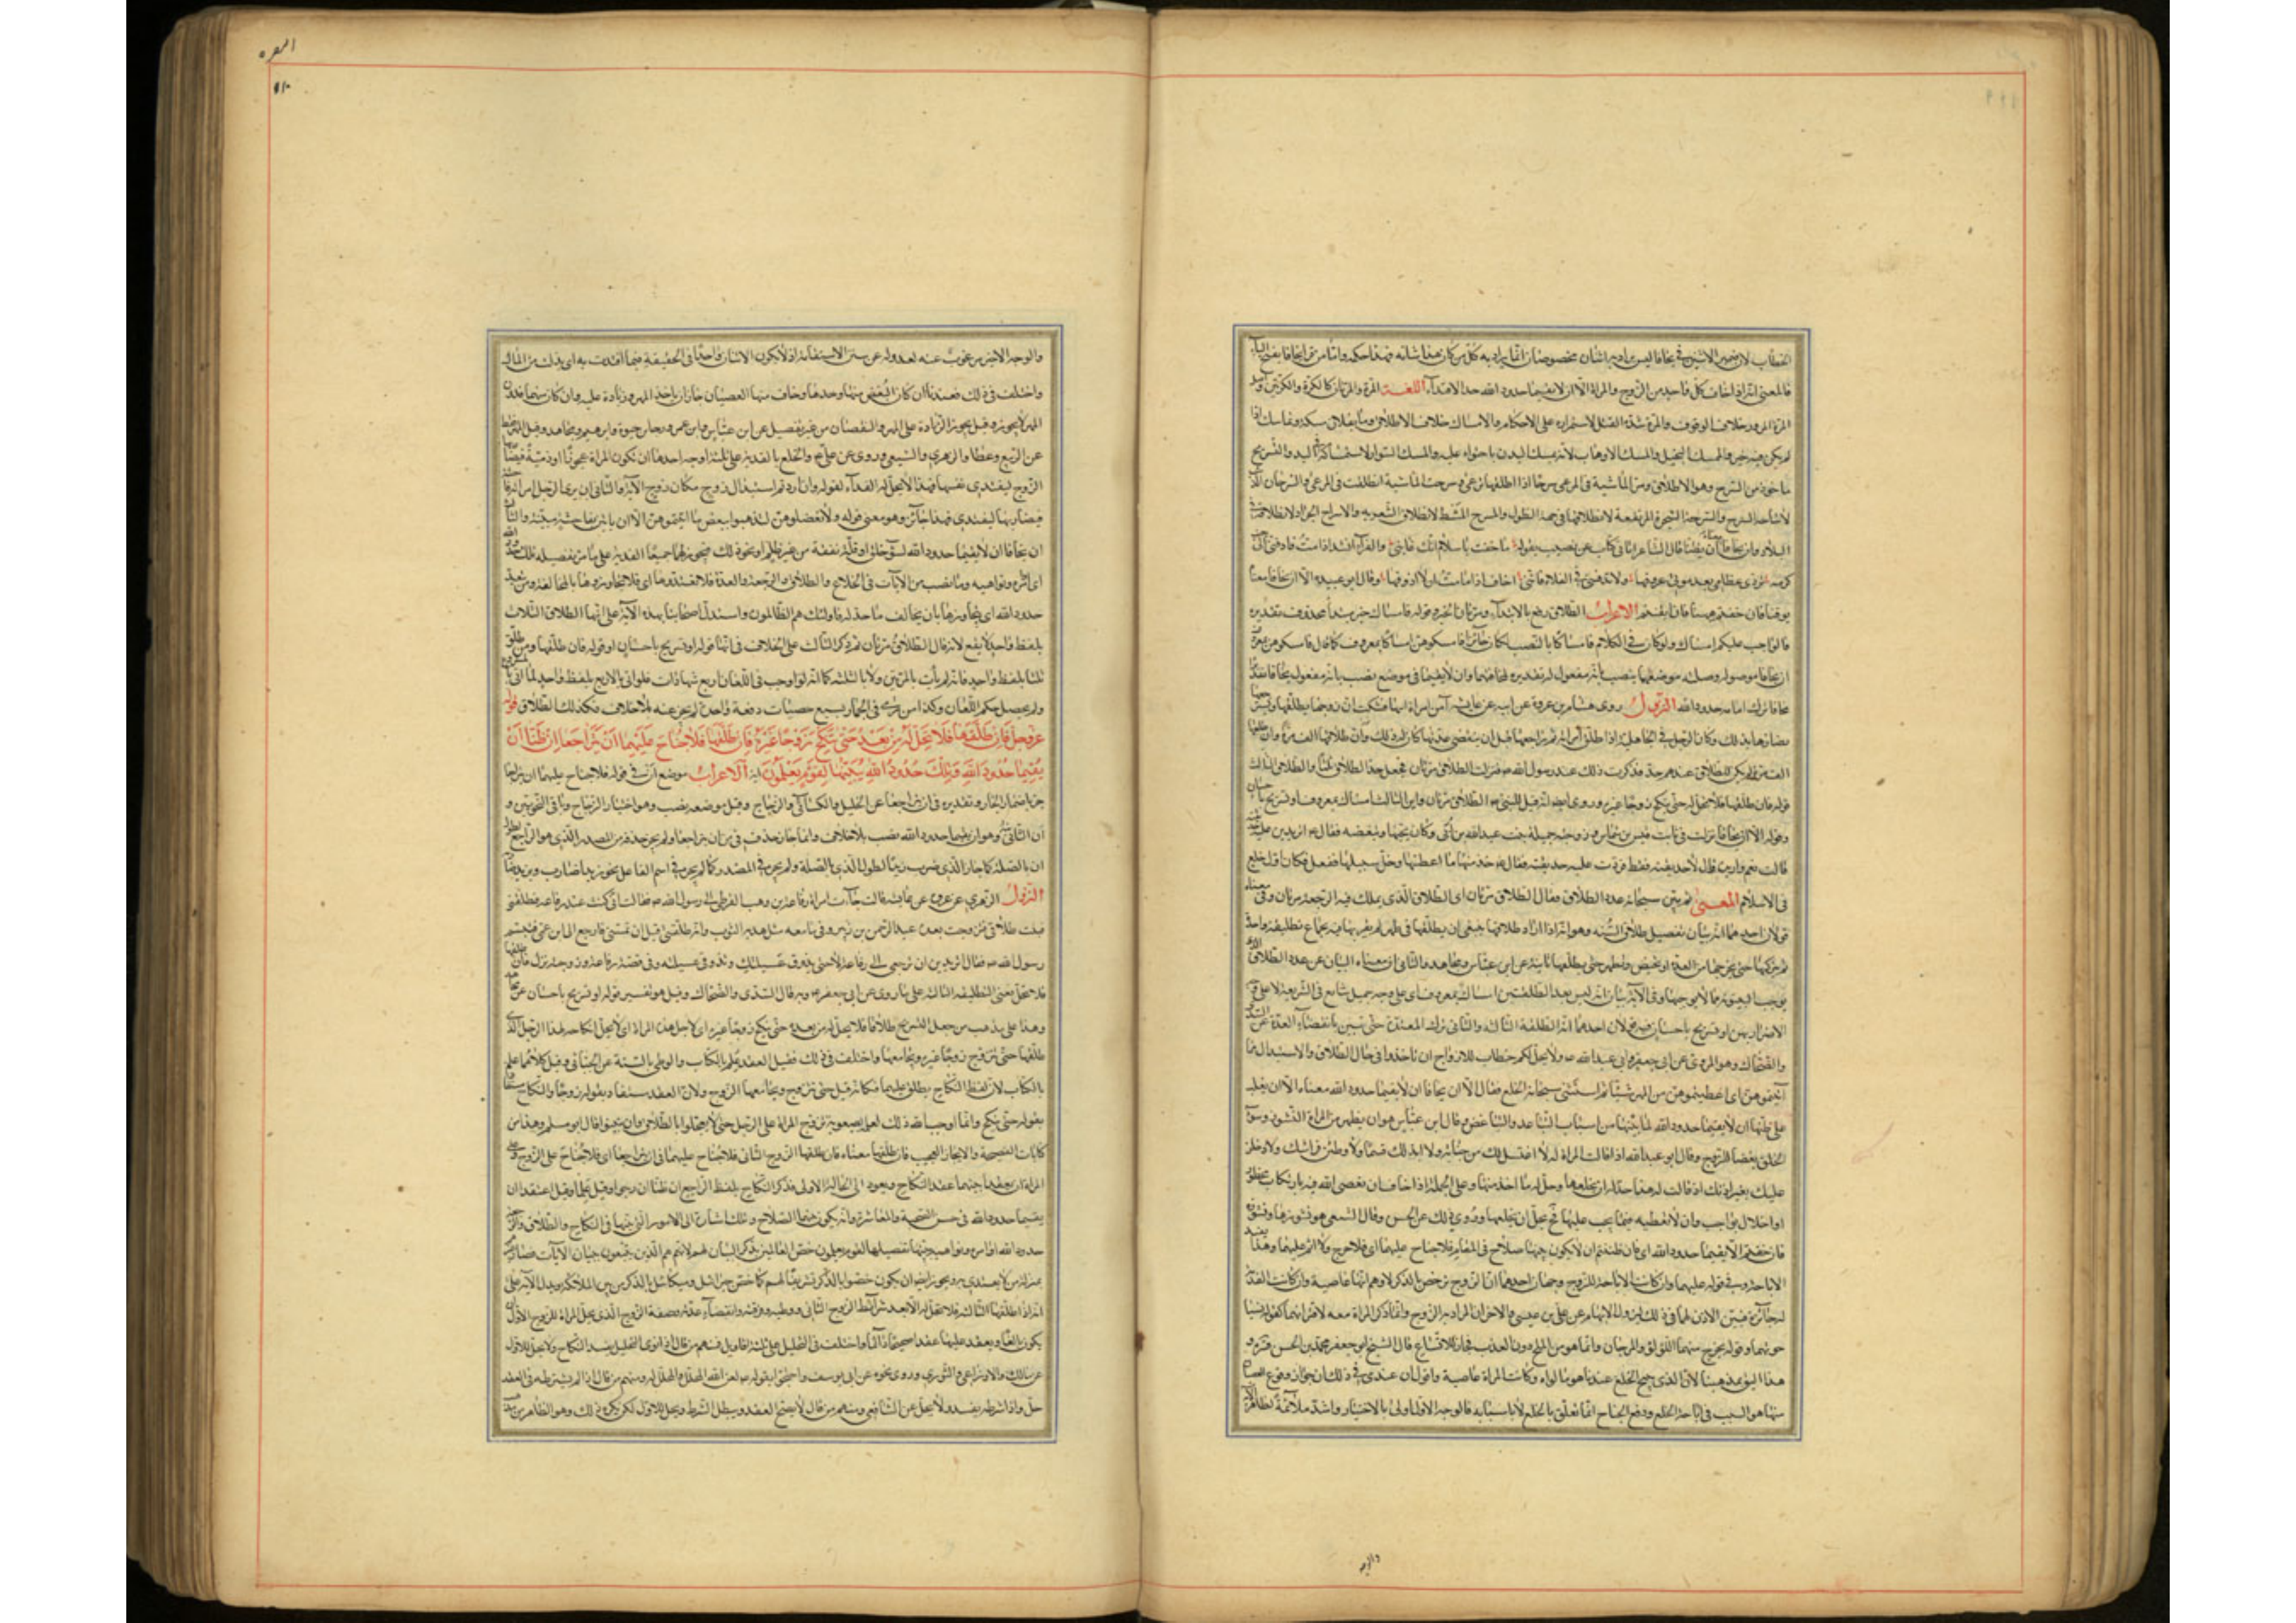 الخطاب لان ضمير الاثنين في يخافا ليس يراد به اثنان مخصوصان انما يراد به كل من كان هذا شانه فهذا حكمه واما من قرا يخافا بفتح الياء
فالمعنى انه اذا خاف كل واحد من الزوج والمراة الا ان لا يقيما حدود الله حد الافتداء اللغة المرة والمرتان كالكرة والكرتين
المرة المرور خلاف الوقوف والمرة شدة الفتل لاستمراره على الاحكام والامساك خلاف الاطلاق وما بفلان مسكة وتماسك اذا
لم يكن فيه خير والمسك البخيل والمسك الاهاب لانه يمسك البدن باحتوائه عليه والمسك السوار لاستمساكه في اليد والتسريح
ماخوذ من السرح وهو الاطلاق وسرح الماشية في المرعى سرحا اذا اطلقها ترعى وسرحت الماشية انطلقت في المرعى والسرحان الذئب
البلاد وان يخافا معناه ان يظنا قال الشاعر اتاني كلام عن نصيب يقوله وما خفت يا سلام انك عائبي والفراء انشد اذا مت فادفني الى
كرمة تروي عظامي بعد موتي عروقها ولا تدفنني في الفلاة فانني اخاف اذا ما مت ان لا اذوقها وقال ابو عبيدة الا ان يخافا معناه
يوقنا فان خفتم ههنا فان ايقنتم الاعراب الطلاق رفع بالابتداء ومرتان الخبر وقوله فامساك خبر مبتدا محذوف تقديره
فالواجب عليكم امساك ولو كان في الكلام فامساكا بالنصب لكان جائزا فامسكوهن امساكا بمعروف كما قال فامسكوهن بمعروف
ان يخافا موصول وصلة موضعهما نصب بانه مفعول له تقديره لمخافتهما وان لا يقيما في موضع نصب بانه مفعول يخافا تقديره
يخافا ترك اقامة حدود الله النزول روى هشام بن عروة عن ابيه عن عايشة ان امراة اتتها فشكت ان زوجها يطلقها ويسترجعها
يضارها بذلك وكان الرجل في الجاهلية اذا طلق امراته ثم راجعها قبل ان تنقضي عدتها كان له ذلك وان طلقها الف مرة
الف مرة لم يكن للطلاق عندهم حد فذكرت ذلك عند رسول الله فنزلت الطلاق مرتان فجعل حد الطلاق ثلثا والطلاق الثالث
قوله فان طلقها فلا تحل له حتى تنكح زوجا غيره وروي ايضا انه قيل للنبي الطلاق مرتان فاين الثالثة قال امساك بمعروف او تسريح باحسان
وقوله الا ان يخافا نزلت في ثابت بن قيس بن شماس وزوجته جميلة بنت عبدالله بن ابي وكان يحبها وتبغضه فقال اتردين عليه حديقته
قالت نعم وازيده قال لا حديقته فقط فردت عليه حديقته فقال خذ منها ما اعطيتها وخل سبيلها ففعل فكان اول خلع
في الاسلام المعنى ثم بين سبحانه عدد الطلاق فقال الطلاق مرتان اي الطلاق الذي يملك فيه الرجعة مرتان وفي معناه
قولان احدهما انه بيان تفصيل طلاق السنة وهو انه اذا اراد طلاقها ينبغي ان يطلقها في طهر لم يقربها فيه بجماع تطليقة واحدة
ثم يتركها حتى تخرج من العدة او تحيض وتطهر حتى يطلقها ثانية عن ابن عباس ومجاهد والثاني ان معناه البيان عن عدد الطلاق الذي
يوجب البينونة مما لا يوجبها وفي الاية بيان انه ليس بعد الطلقتين امساك بمعروف اي على وجه جميل شايع في الشريعة لا على وجه
الاضرار بهن او تسريح باحسان فيه قولان احدهما انه الطلقة الثالثة والثاني ترك المعتدة حتى تبين بانقضاء العدة عن السدي
والضحاك وهو المروي عن ابي جعفر وابي عبدالله ولا يحل لكم خطاب للازواج ان تاخذوا في حال الطلاق والاستبدال مما
اتيتموهن اي اعطيتموهن من المهر شيئا ثم استثنى سبحانه الخلع فقال الا ان يخافا ان لا يقيما حدود الله معناه الا ان يغلب
على ظنهما ان لا يقيما حدود الله لما بينهما من اسباب التباعد والتباغض وقال ابن عباس هو ان يظهر من المراة النشوز وسوء
الخلق بغضا للزوج وقال ابو عبدالله اذا قالت المراة له لا اغتسل لك من جنابة ولا ابر لك قسما ولاوطئن فراشك ولادخلن
عليك بغير اذنك اذا قالت له هذا حل له ان يخلعها وحل له ما اخذ منها وعلى الجملة اذا خافا ان تعصي الله فيه بارتكاب محظور
او اخلال بواجب وان لا تعطيه فيما يجب عليها فح يحل ان يخلعها وروي ذلك عن الحسن وقال الشعبي هو نشوزها ونشوزه
فان خفتم الا يقيما حدود الله اي فان ظننتم ان لا يكون بينهما صلاح في المقام فلا جناح عليهما اي فلا حرج ولا اثم عليهما وهذا يفيد
الاباحة وفي قوله عليهما وان كانت الاباحة للزوج وجهان احدهما ان الزوج لو خص بالذكر لاوهم انها عاصية وان كانت الفدية
له جائزة فبين الاذن لهما في ذلك ليزول الابهام عن علي بن عيسى والاخر ان المراد به الزوج وانما ذكر المراة معه لاقترانهما كقوله نسيا
حوتهما وقوله يخرج منهما اللؤلؤ والمرجان وانما هو من الملح دون العذب فجاز للاتساع قال الشيخ ابو جعفر محمد بن الحسن
هذا اليق بمذهبنا لان الذي يبيح الخلع عندنا هو ما لولاه لكانت المراة عاصية واقول ان عندي في ذلك ان جواز وقوع العصيان
منها هو السبب في اباحة الخلع ورفع الجناح انما تعلق بالخلع لا باسبابه فالوجه الاول اولى بالاختيار واشد ملائمة لظاهر الاية
والوجه
البقره
والوجه الاخير مرغوب عنه لعدوله عن سنن الاستقامة اذ لا يكون الاثنان واحدا في الحقيقة فيما افتدت به اي بذلت من المال
واختلف في ذلك فعندنا ان كان البغض منها وحدها وخاف منها العصيان جاز ان ياخذ المهر وزيادة عليه وان كان منهما فدون
المهر لا يجوز وقيل يجوز الزيادة على المهر والنقصان من غير تفصيل عن ابن عباس وابن عمر ورجاء بن حيوة وابرهيم ومجاهد وقيل المهر فقط
عن الربيع وعطا والزهري والشعبي وروي عن علي والخلع بالفدية على ثلثة اوجه احدها ان تكون المراة عجوزا او ذميمة فيضار بها
الزوج لتفتدي نفسها فهذا لا يحل له الفداء لقوله وان اردتم استبدال زوج مكان زوج الاية والثاني ان يرى الرجل امراته على فاحشة
فيضار بها لتفتدي فهذا جائز وهو معنى قوله ولا تعضلوهن لتذهبوا ببعض ما اتيتموهن الا ان ياتين بفاحشة مبينة والثالث
ان يخافا ان لا يقيما حدود الله لسوء خلق او قلة نفقة من غير ظلم او نحو ذلك فيجوز لهما جميعا الفدية على ما مر تفصيله تلك حدود الله
اي اوامره ونواهيه وما نصب من الايات في الخلع والطلاق والرجعة والعدة فلا تعتدوها اي فلا تجاوزوها بالمخالفة ومن يتعد
حدود الله اي يتجاوزها بان يخالف ما حد له فاولئك هم الظالمون واستدل اصحابنا بهذه الاية على ان الطلاق الثلاث
بلفظ واحد لا يقع لانه قال الطلاق مرتان ثم ذكر الثالثة على الخلاف في انها قوله او تسريح باحسان او قوله فان طلقها ومن طلق
ثلثا بلفظ واحد فانه لم يات بالمرتين ولا بالثلثة كما انه لو اوجب في اللعان اربع شهادات فلو اتى بالاربع بلفظ واحد لما اتى بالمشروع
ولم يحصل حكم اللعان وكذا من رمى في الجمار بسبع حصيات دفعة واحدة لم يجز عنه بلا خلاف فكذلك الطلاق قوله
عز وجل فَإن طَلَّقَهَا فَلَا تَحِلُّ لَهُ مِنْ بَعْدُ حَتَّى تَنْكِحَ زَوْجًا غَيْرَهُ فَإن طَلَّقَهَا فَلَا جُنَاحَ عَلَيْهِمَا أَنْ يَتَرَاجَعَا إِنْ ظَنَّا أَنْ
يُقِيمَا حُدُودَ اللَّهِ وَتِلْكَ حُدُودُ اللَّهِ يُبَيِّنُهَا لِقَوْمٍ يَعْلَمُونَ اية الاعراب موضع ان في قوله فلا جناح عليهما ان يتراجعا
جر باضمار الجار وتقديره في ان يتراجعا عن الخليل والكسائي والزجاج وقيل موضعه نصب وهو اختيار الزجاج وباقي النحويين و
ان الثانية وهو ان يقيما حدود الله نصب بلا خلاف وانما جاز حذف في من ان يتراجعا ولم يجز حذفه من المصدر الذي هو التراجع لطول
ان بالصلة كما جاز الذي ضرب زيد لطول الذي بالصلة ولم يجز في المصدر كما لم يجز في اسم الفاعل نحو زيد ضارب
النزول الزهري عن عروة عن عايشة قالت جاءت امراة رفاعة بن وهب القرظي الى رسول الله فقالت اني كنت عند رفاعة فطلقني
فبت طلاقي فتزوجت بعده عبد الرحمن بن زبير وانما معه مثل هدبة الثوب وانه طلقني قبل ان يمسني فارجع الى ابن عمي فتبسم
رسول الله فقال اتريدين ان ترجعي الى رفاعة لا حتى يذوق عسيلتك وتذوقي عسيلته وفي قصة رفاعة وزوجته نزل فان طلقها
فلا تحل يعني التطليقة الثالثة على ما روي عن ابي جعفر وبه قال السدي والضحاك وقيل هو تفسير قوله او تسريح باحسان عن مجاهد
وهذا على مذهب من جعل التسريح طلاقا فلا يحل له من بعده حتى تنكح زوجا غيره اي لاجل هذه المراة اي لا يحل نكاحه لهذا الرجل الذي
طلقها حتى تتزوج زوجا غيره ويجامعها واختلف في ذلك فقيل العقد علم بالكتاب والوطي بالسنة عن الجبائي وقيل كلاهما علم
بالكتاب لان لفظ النكاح يطلق عليهما فكانه قيل حتى تتزوج ويجامعها الزوج ولان العقد مستفاد بقوله زوجا والنكاح مستفاد
بقوله حتى تنكح وانما اوجب الله ذلك لعلمه بصعوبة تزوج المراة على الرجل حتى لا يعجلوا بالطلاق وان يتثبتوا قال ابو مسلم وهذا من
كنايات الفصيحة والايجاز العجيب فان طلقها معناه فان طلقها الزوج الثاني فلا جناح عليهما في ان يتراجعا اي فلا جناح على الزوج وعلى
المراة ان يعقدا بينهما عقد النكاح ويعودا الى الحالة الاولى فذكر النكاح بلفظ التراجع ان ظنا ان رجوا وقيل علما وقيل اعتقدا ان
يقيما حدود الله في حسن الصحبة والمعاشرة وانه يكون بينهما الصلاح وتلك اشارة الى الامور التي بينها في النكاح والطلاق والرجعة
حدود الله اوامره ونواهيه يبينها يفصلها لقوم يعلمون خص العالمين بذكر البيان لهم لانهم هم الذين ينتفعون ببيان الايات فصار غيرهم
بمنزلة من لا يعتد به ويجوز ايضا ان يكون خصوا بالذكر تشريفا لهم كما خص جبرائيل وميكائيل بالذكر من بين الملائكة ويدل الاية على
انه اذا طلقها الثالثة فلا تحل له الا بعد شرائط الزوج الثاني ووطيه وفرقته وانقضاء عدته وصفة الزوج الذي يحل المراة للزوج الاول ان
يكون بالغا ويعقد عليها عقدا صحيحا دائما واختلف في التحليل على ثلثة اقاويل فمنهم من قال اذا نوى التحليل يفسد النكاح ولا يحل للاول
عن مالك والاوزاعي والثوري وروي نحوه عن ابي يوسف واحتجوا بقوله لعن الله المحلل والمحلل له ومنهم من قال اذا لم يشترطه في العقد
حل واذا شرطه يفسد ولا يحل عن الشافعي ومنهم من قال لا يصح العقد ويبطل الشرط ويحل للاول لكن يكره ذلك وهو الظاهر من مذهب